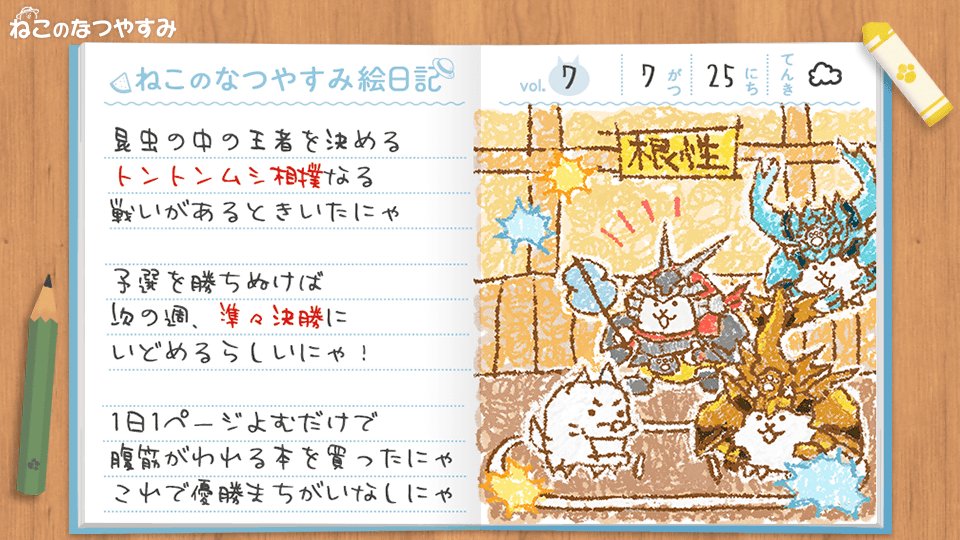 ねこのなつやすみ
ねこのなつやすみ絵日記
vol. 7 7 がつ 25 にち てんき
昆虫の中の王者を決める
トントンムシ相撲なる
戦いがあるときいたにゃ
予選を勝ちぬけば
次の週、準々決勝に
いどめるらしいにゃ！
1日1ページよむだけで
腹筋がわれる本を買ったにゃ
これで優勝まちがいなしにゃ
根性